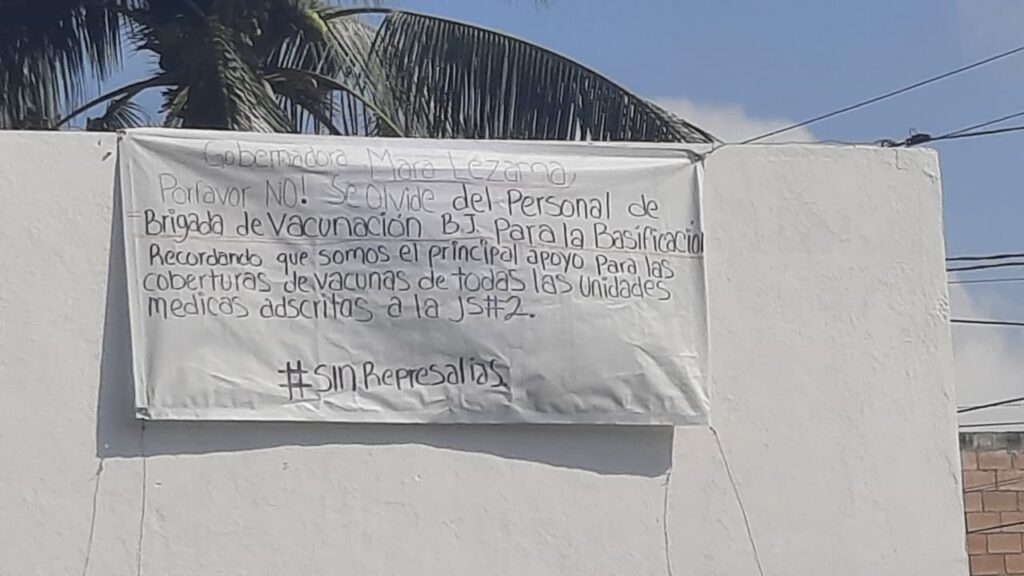 Gobernadora Mara Lezama,
Porfavor NO! Se Olvide del Personal de
Brigada de Vacunación B.J. Para la Basificación
Recordando que somos el principal apoyo Para las
coberturas de vacunas de todas las Unidades
medicas adscritas a la JS#2.
#SinRepresalias